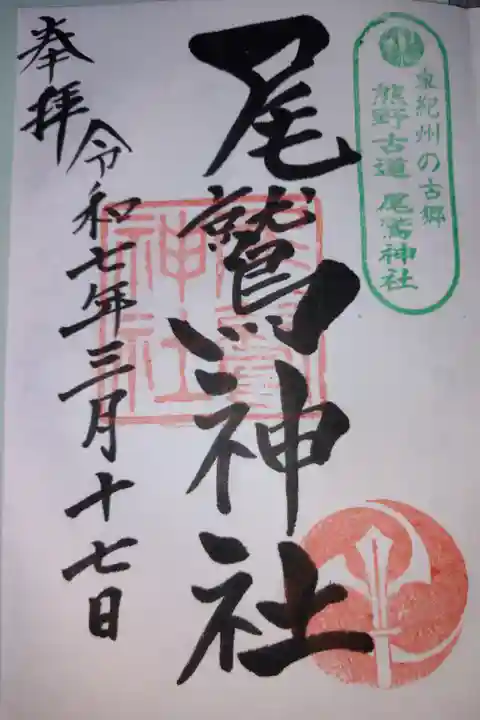 東紀州の古郷
熊野古道 尾鷲神社
尾鷲神社
奉拝
令和七年三月十七日
尾鷲
神社